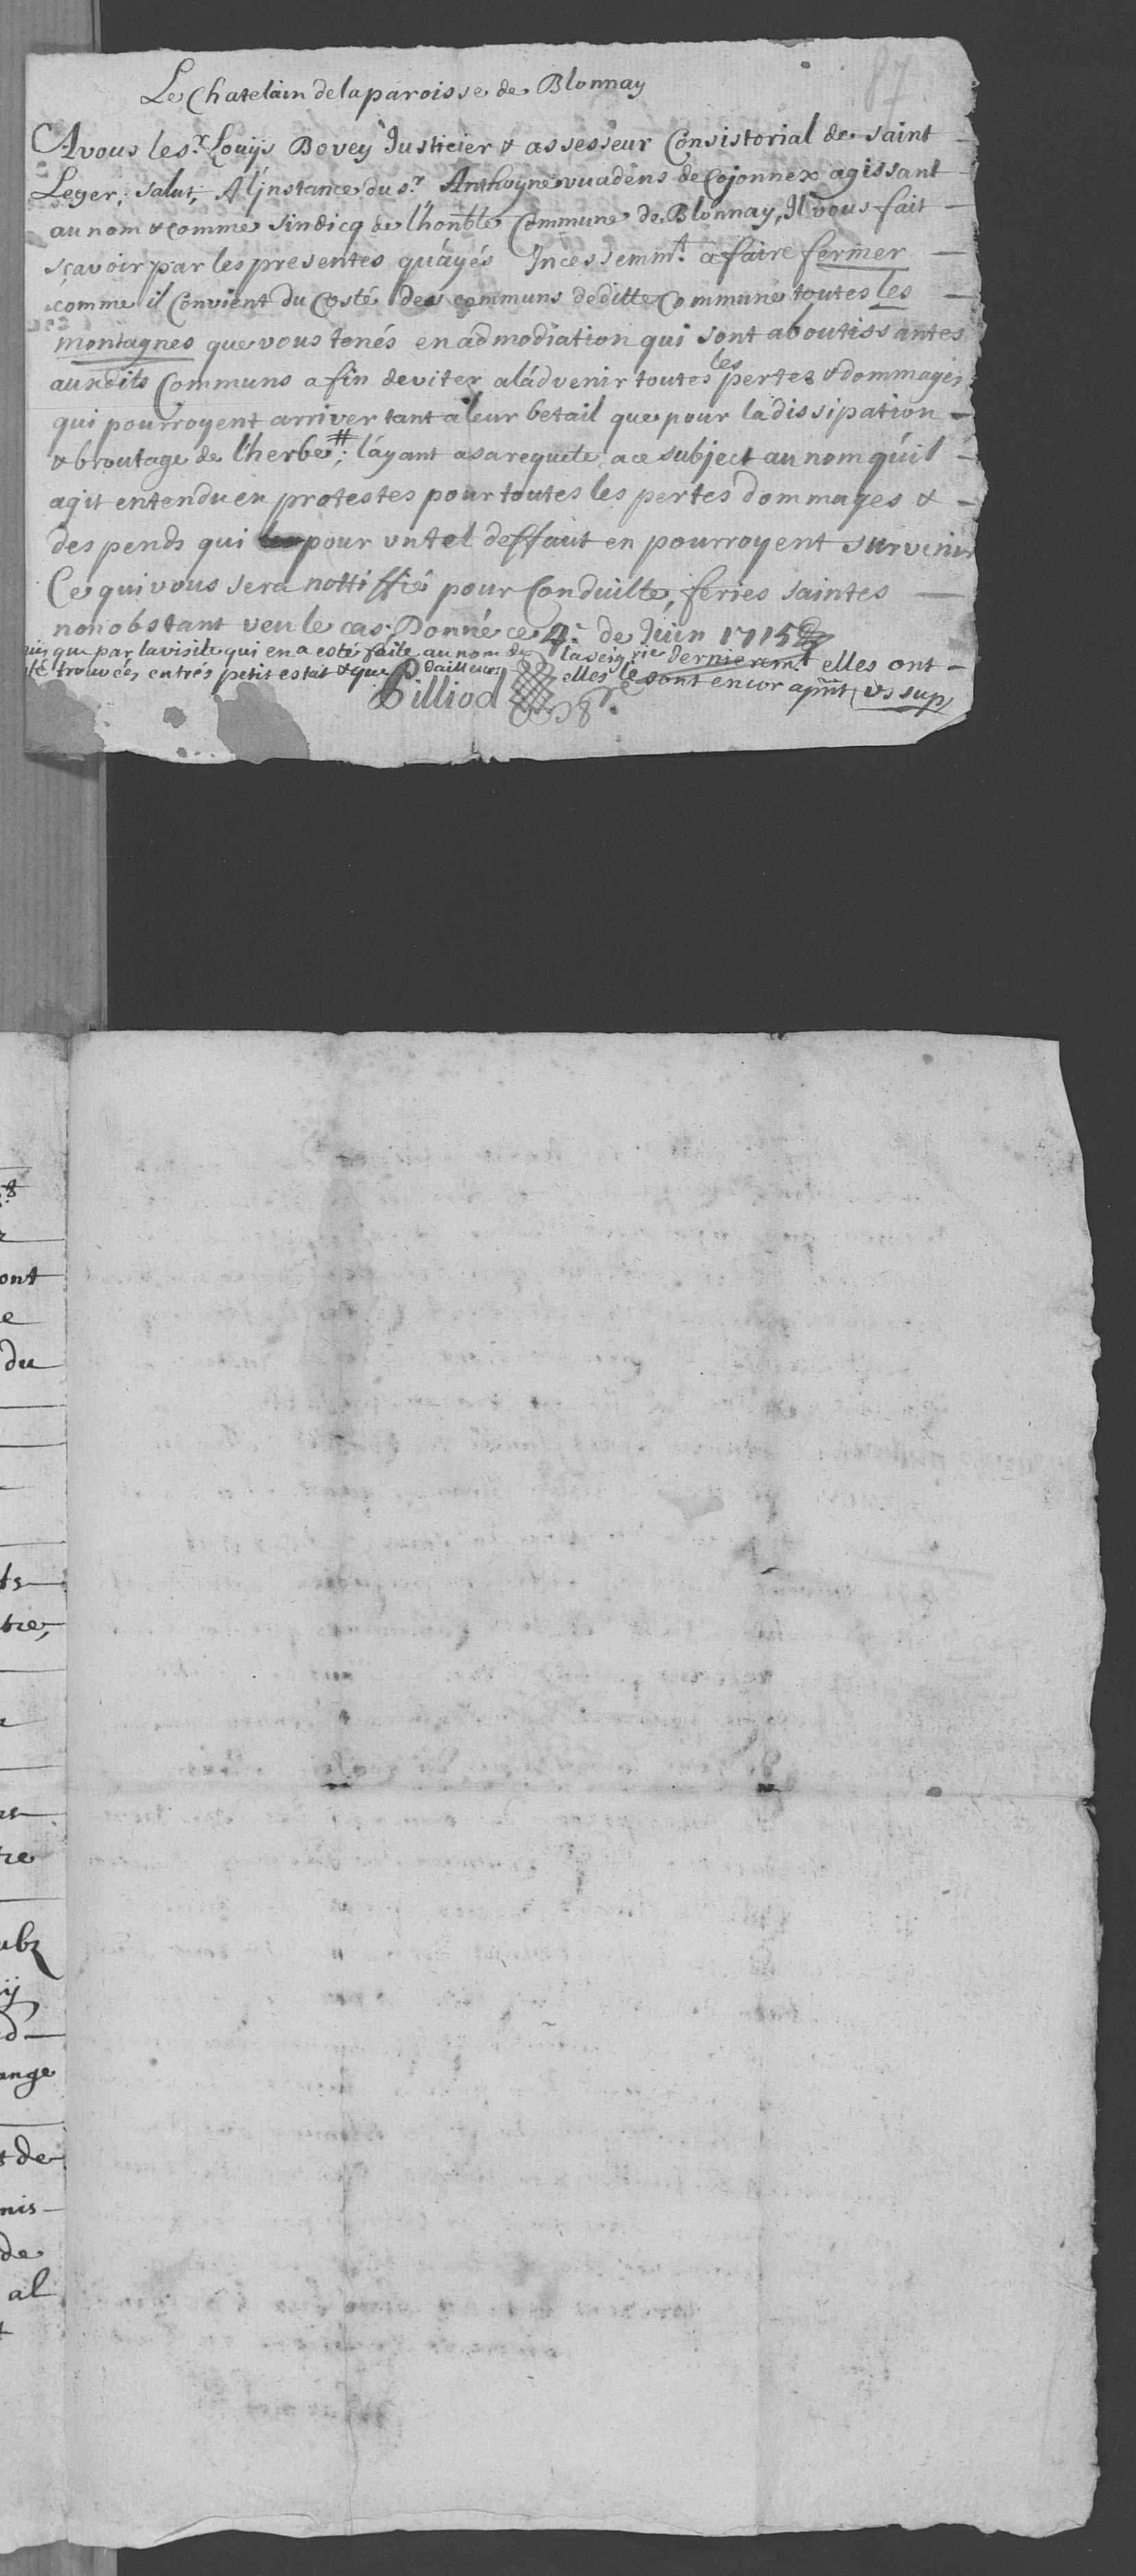 87
Le Chatelain de la paroisse de Blonnay
A vous le s.r Louijs Bovey Justicier & assesseur Consistorial de saint
Leger; salut; A l'jnstance du s.r Anthoyne vuadens de Cojonnex agissant
au nom & comme sindicq de l'honble Commune de Blonnay, Il vous fait
sçavoir par les presentes qu'ayés Incessemm.t a faire fermer
comme il Convient du Costé des communs de ditte Commune toutes les
montagnes que vous tenés en admodiation qui sont aboutissantes
ausdits Communs afin deviter a ladvenir toutes les pertes & dommages
qui pourroyent arriver tant a leur betail que pour la dissipation
& broutage de l'herbe #; l'ayant a sa requete a ce subject au nom qu'il
agit entendu en protestes pour toutes les pertes dommages &
despends qui pour un tel deffaut en pourroyent survenir
Ce qui vous sera nottiffié pour Conduitte, feries saintes
nonobstant veu le cas; Donné ce 4.e de Juin 1715
que par la visite qui en a esté faite au nom de la seig.rie dernierem.t elles ont
été trouvées entrés petit estat & que dailleurs elles le sont encor apnt us sup
Pilliod
ont
e
du
ts
tre,
re
ubz
ij
d
ange
de
mis
de
al